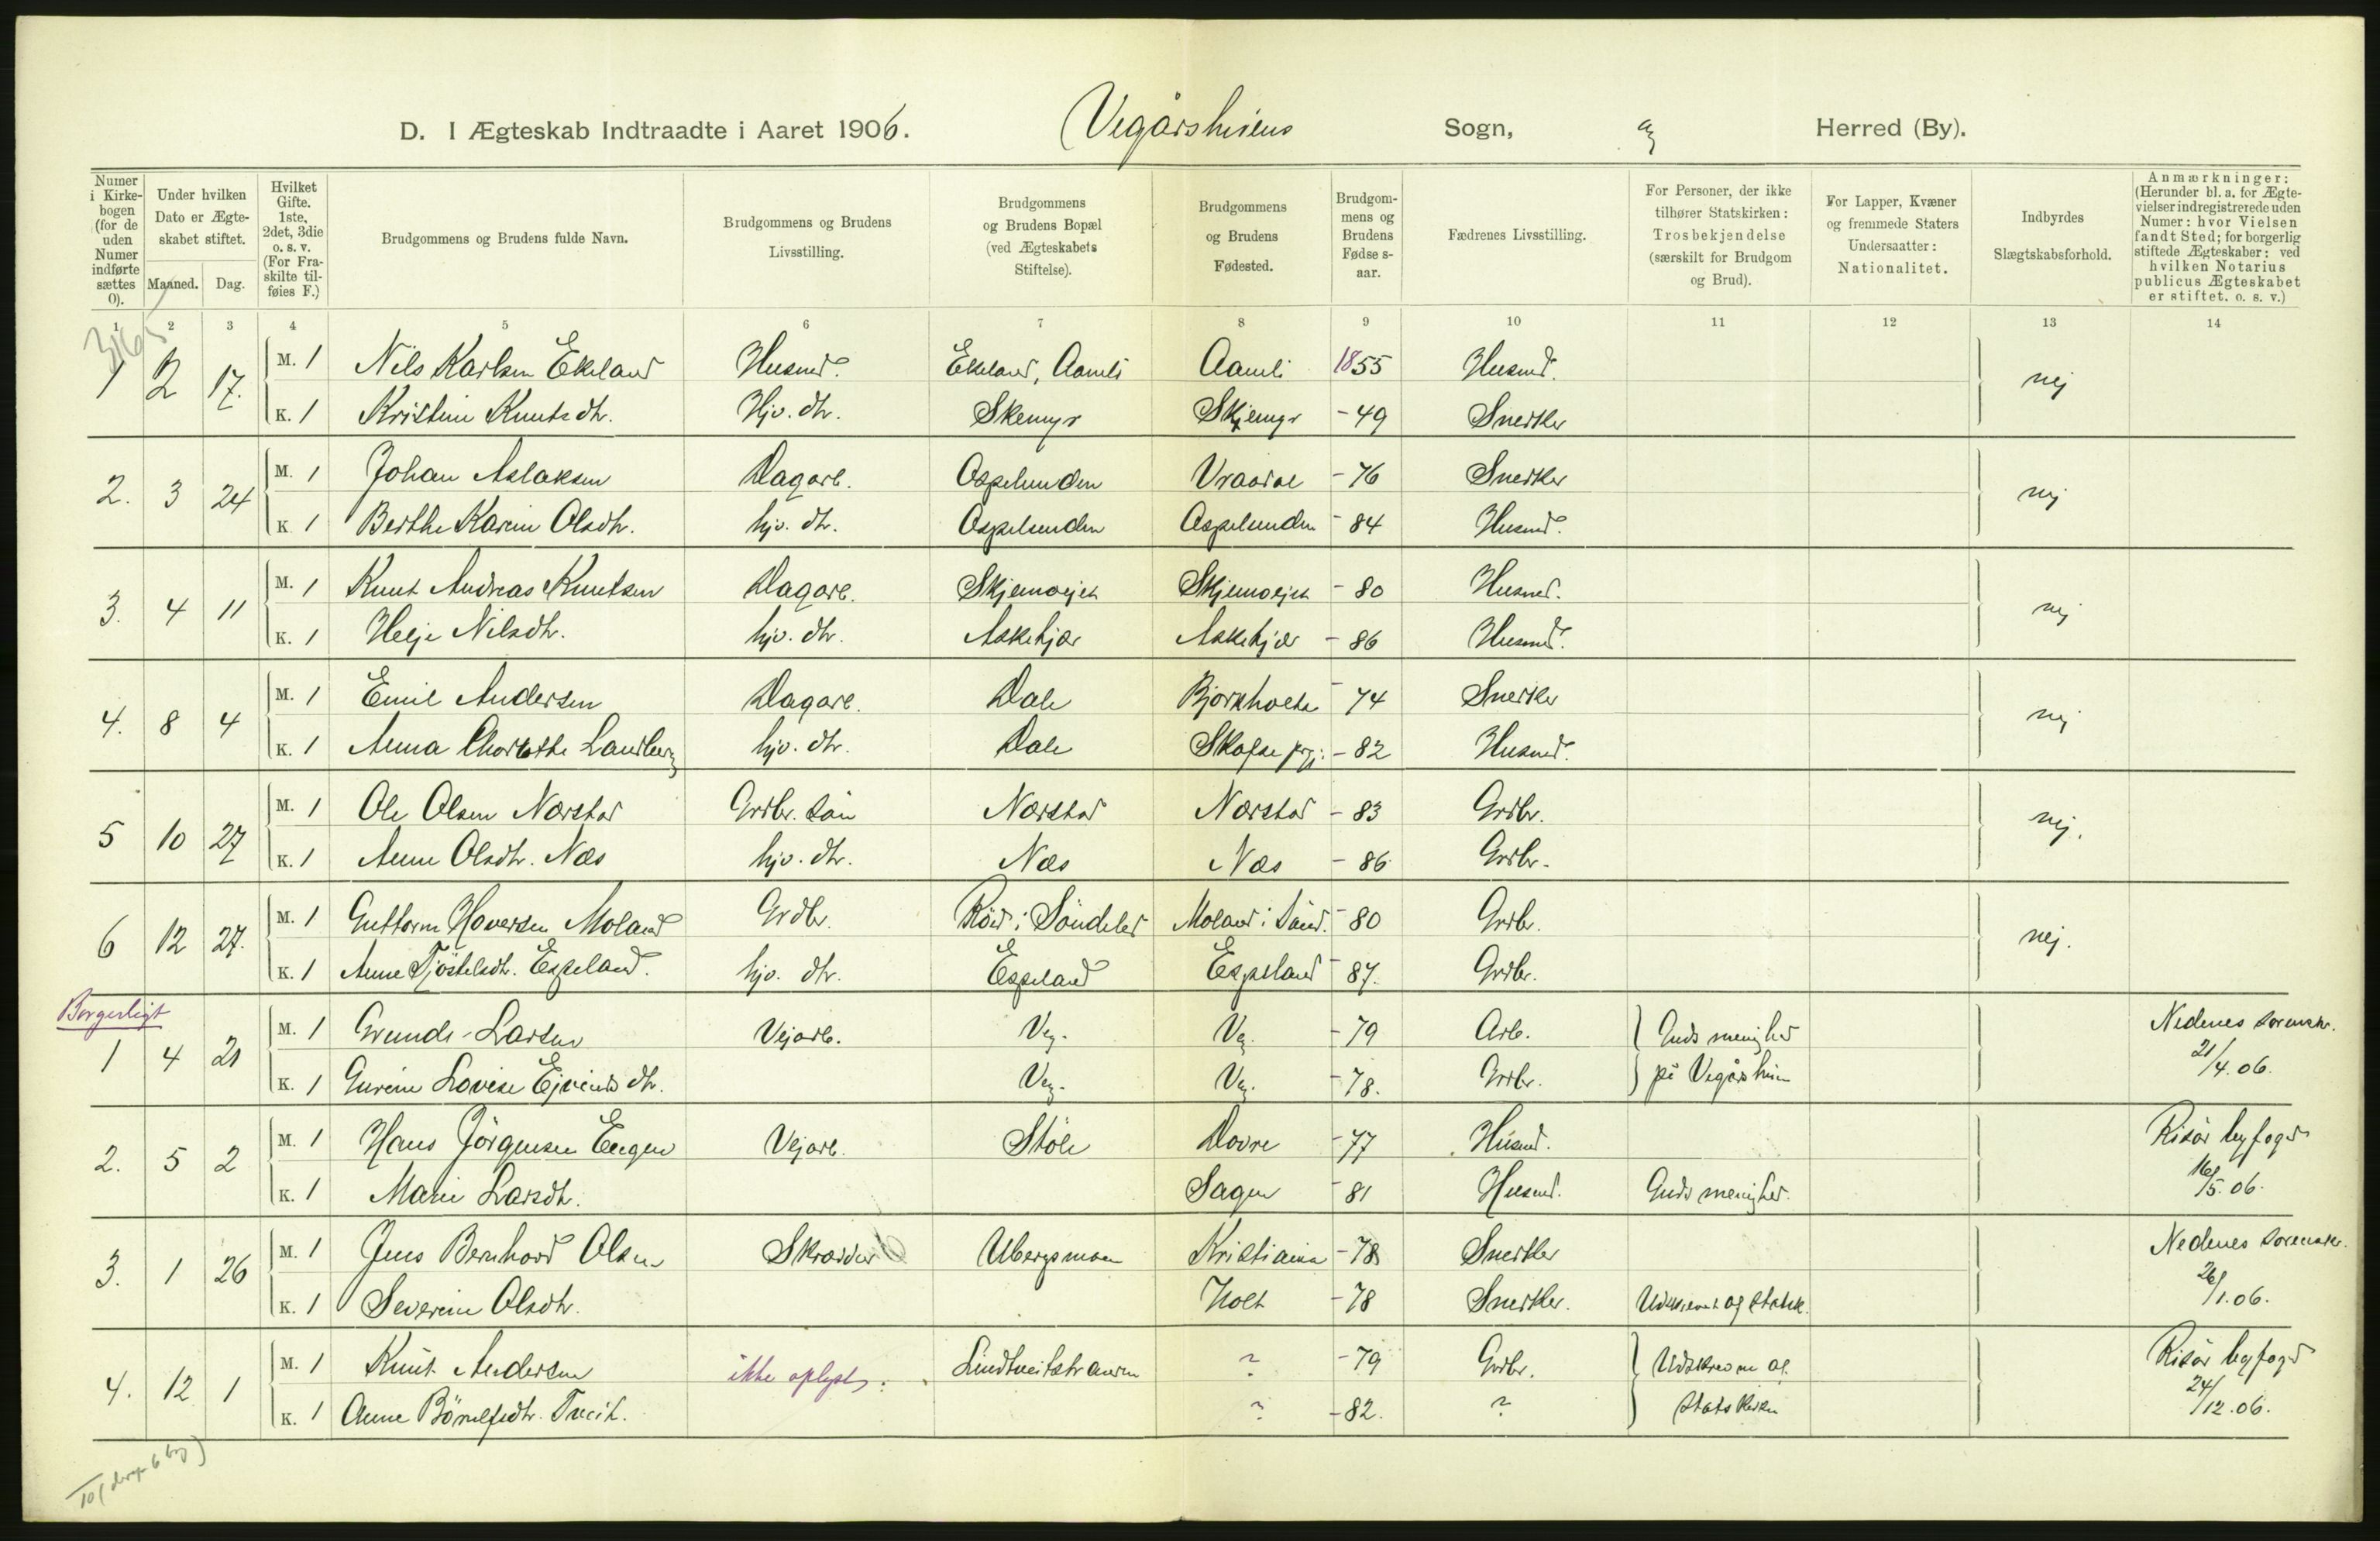 D. I Ægteskab Indtraadte i Aaret 1906. Vegårshiens Sogn, Herred (By).
Numer i Kirkebogen (for de uden Numer indførte sættes 0).
Under hvilken Dato er Ægteskabet stiftet.
Maaned. Dag.
Hvilket Gifte. 1ste, 2det, 3die o. s. v. (For Fraskilte tilføies F.)
Brudgommens og Brudens fulde Navn.
Brudgommens og Brudens Livsstilling.
Brudgommens og Brudens Bopæl (ved Ægteskabets Stiftelse).
Brudgommens og Brudens Fødested.
Brudgommens og Brudens Fødselsaar.
Fædrenes Livsstilling.
For Personer, der ikke tilhører Statskirken: Trosbekjendelse (særskilt for Brudgom og Brud).
For Lapper, Kvæner og fremmede Staters Undersaatter: Nationalitet.
Indbyrdes Slægtskabsforhold.
Anmærkninger: (Herunder bl. a. for Ægtevielser indregistrerede uden Numer: hvor Vielsen fandt Sted; for borgerlig stiftede Ægteskaber: ved hvilken Notarius publicus Ægteskabet er stiftet. o. s. v.)
1 2 3 4 5 6 7 8 9 10 11 12 13 14
365
1 2 17. M. 1 Nils Karlsen Ekeland Husmd. Ekeland, Aamli Aamli 1855 Husmd. nej
K. 1 Kristine Knutsdtr. Hjv. dtr. Skemyr Skjemyr - 49 Snedker
2. 3 24 M. 1 Johan Aslaksen Dagarb. Ospelunden Vraadal - 76 Snedker nej
K 1 Berthe Karine Olsdtr. hjv. dtr. Ospelunden Ospelunden - 84 Husmd.
3. 4 11 M. 1 Knut Andreas Knutsen Dagarb. - 80 Husmd. nej
K. 1 Helje Nilsdtr. hjv. dtr. Askehjær Askehjær - 86 Husmd.
4. 8 4 M. 1 Emil Andersen Dagarb. Dale Bjorkholta - 74 Snedker nej
K. 1 Anna hjv. dtr. Dale Skafse prgj. - 82 Husmd.
5 10 27 M. 1 Ole Olsen Nærstad Grdbr. sön Nærstad Nærstad - 83 Grdbr. nej.
K. 1 Anne Olsdtr. Næs hjv. dtr. Næs Næs - 86 Grdbr.
6 12 27. M. 1 Guttorm Haversen Moland Grdbr. Röd i Söndeled Moland i Sönd. - 80 Grdbr. nej.
K. 1 Anne Tjöstelsdtr. Espeland. hjv. dtr. Espeland Espeland - 87. Grdbr.
Borgerligt
1 4 21 M. 1 Grunde Larsen Vejarb. Veg. Veg. - 79 Arb. Guds menighed Nedenes sorenskr.
K. 1 Gurine Lovise Ejvindsdtr. Veg. Veg. - 78. Grdbr. på Vegårshien 21/4. 06.
2. 5 2 M. 1 Hans Jörgensen Engen Vejarb. Stöle Dovre - 77 Husmd. Risör byfoged
K. 1 Marie Larsdtr. Sagen - 81 Husmd. Guds menighed. 16/5. 06.
3. 1 26 M. 1 Jens Bernhard Olsen Skrædder Ubergsmoen Kristiania - 78 Snedker Nedenes sorenskr.
K. 1 Severine Olsdtr. Holt - 78 Snedker. Udskrevet af statsk. 26/1. 06.
4. 12 1 M. 1 Knut Andersen ikke oplyst. ? - 79 Grdbr. Udskrevne af Risör byfoged
K. 1 Anne Treit. ? - 82. ? Statskirken 24/12. 06.
10 ( 6 )